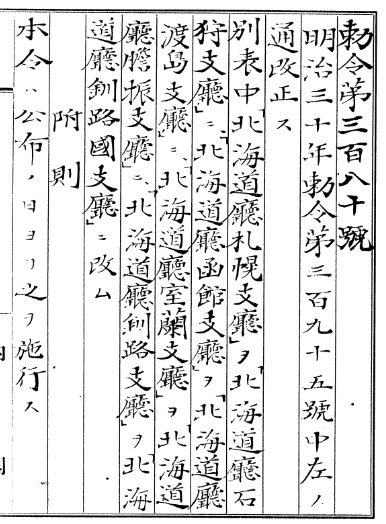 勅令第三百八十號
明治三十年勅令第三百九十五號中左ノ
通改正ス
別表中「北海道廳札幌支廳」ヲ「北海道廳石
狩支廳」ニ、「北海道廳函館支廳」ヲ「北海道廳
渡島支廳」ニ、「北海道廳室蘭支廳」ヲ「北海道
廳膽振支廳」ニ、「北海道廳釧路支廳」ヲ「北海
道廳釧路國支廳」ニ改ム
附則
本令ハ公布ノ日ヨリ之ヲ施行ス